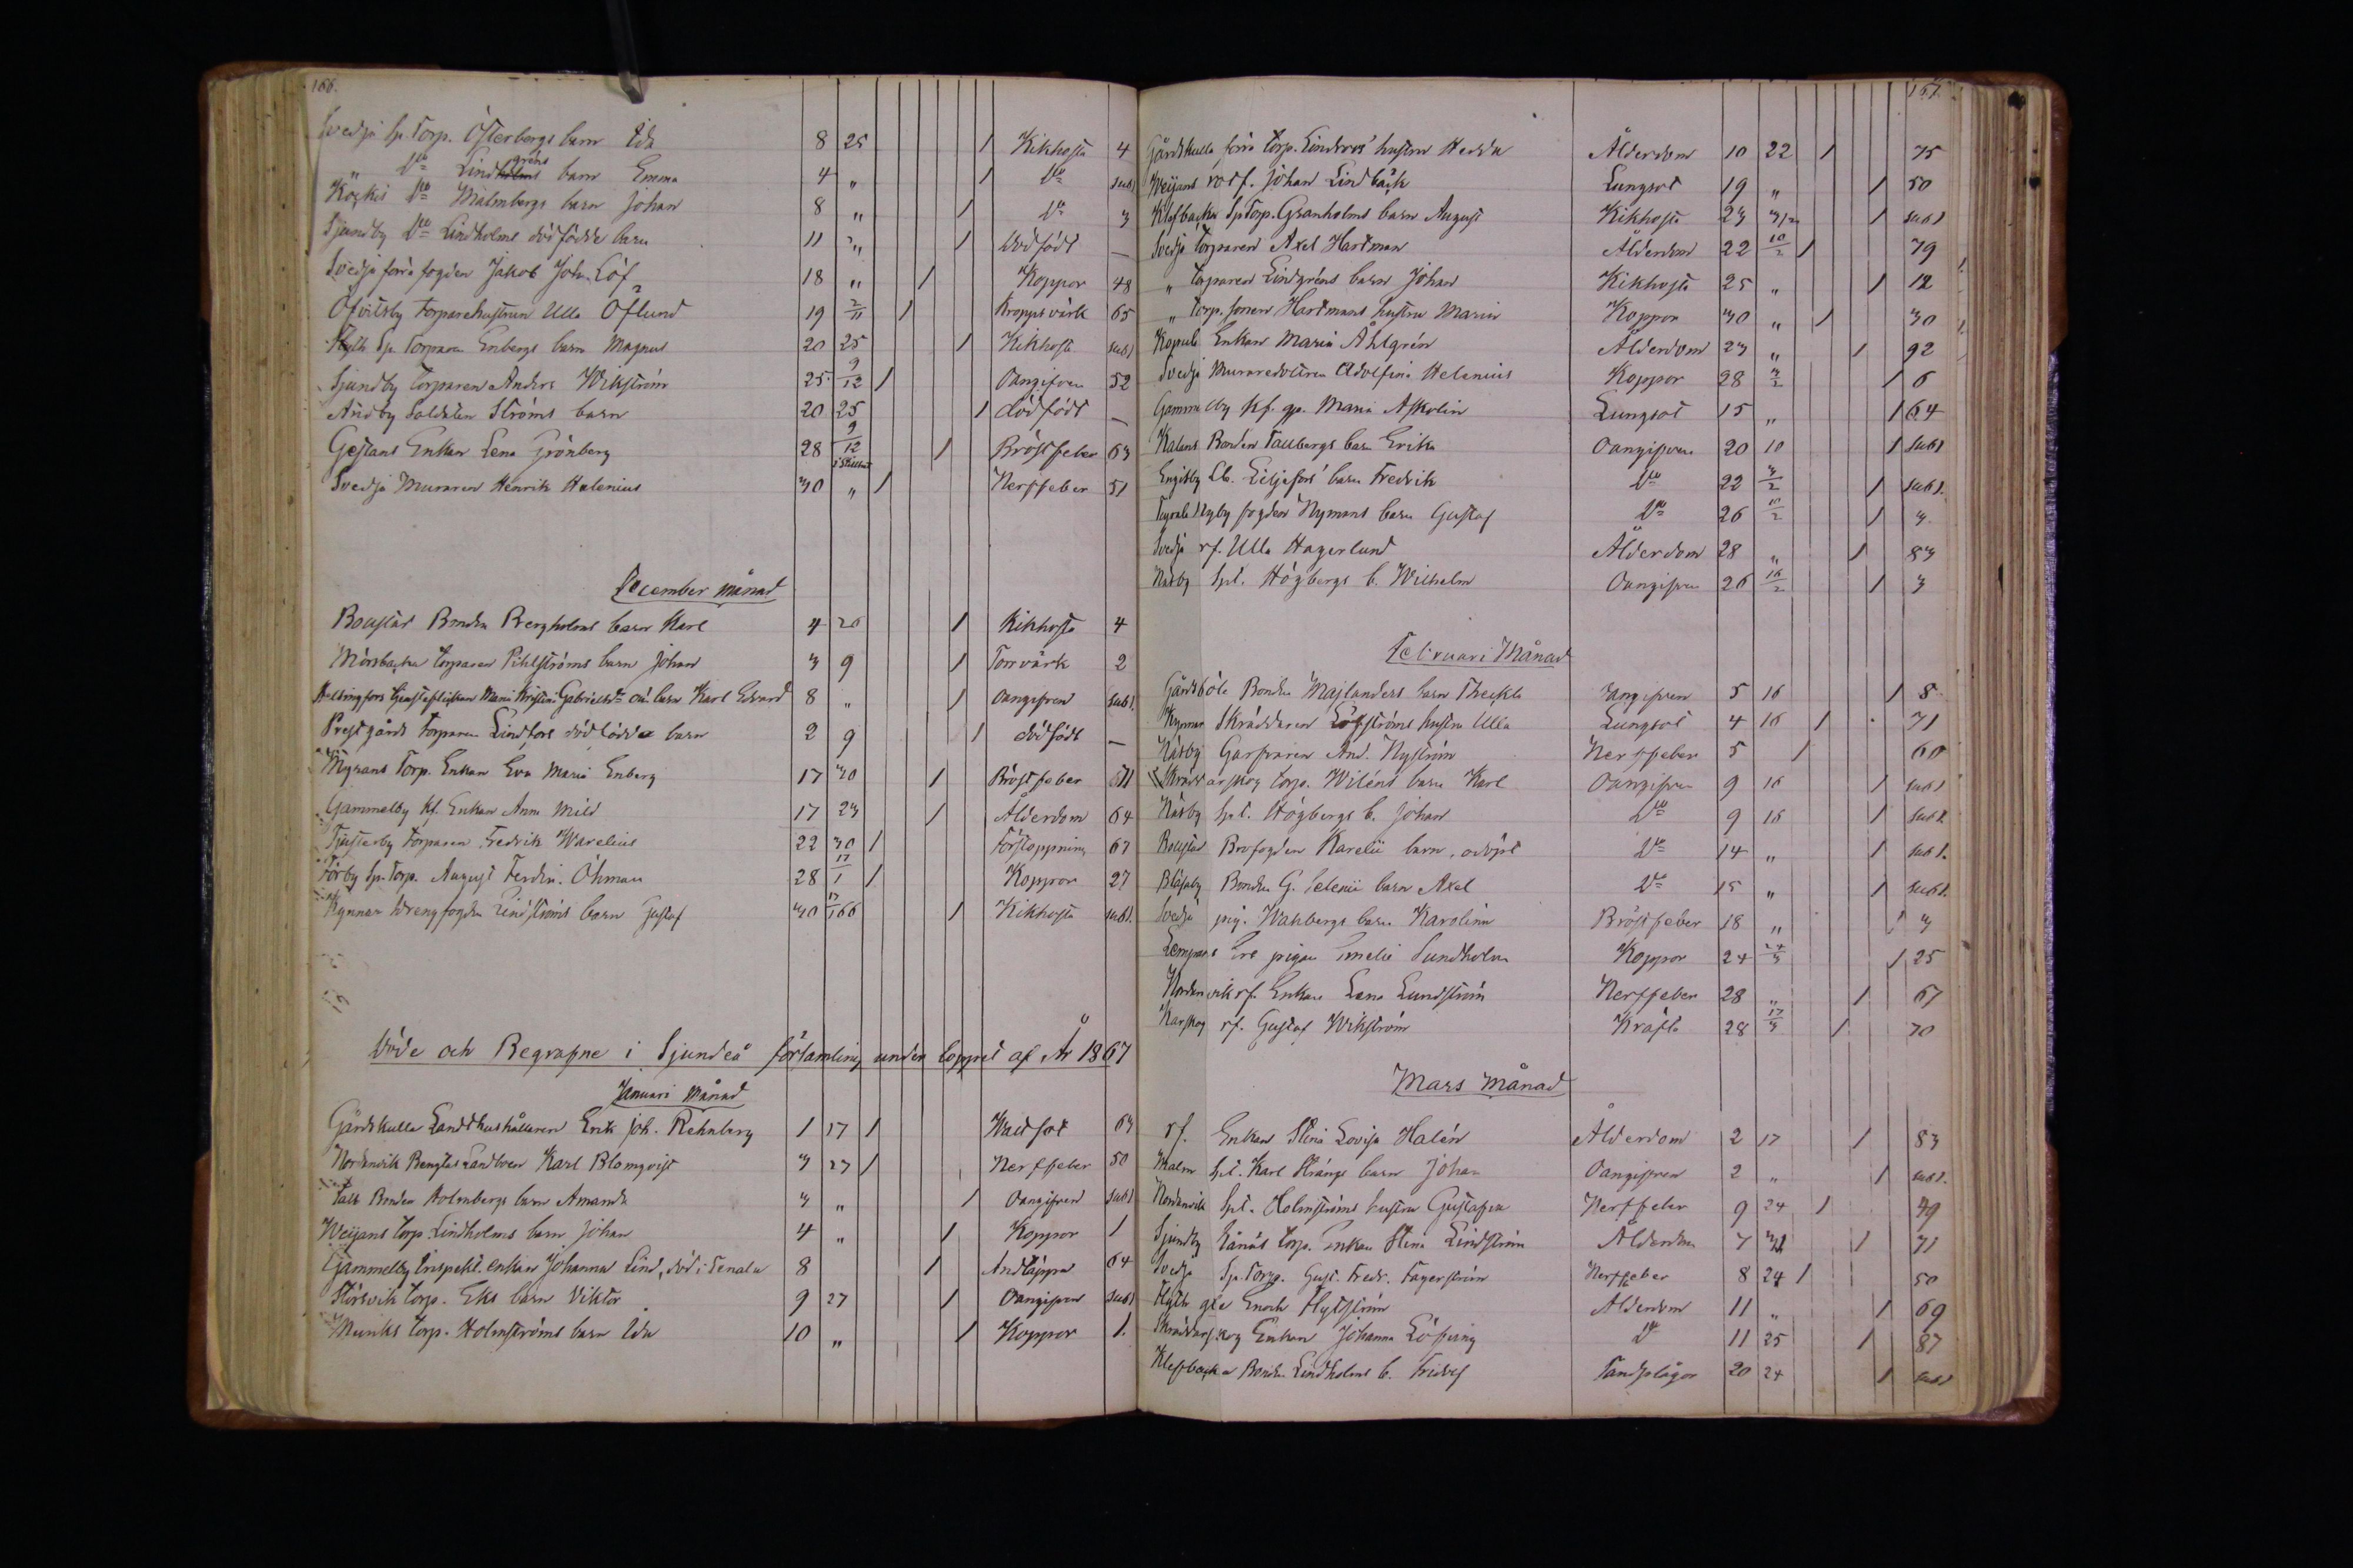 166.
Svedja Sp. Torp. Österbergs barn Ida 8 25 1 Kikhosta 4
" Do Lindgréns barn Emma 4 " 1 Do sub1
Kockis Do Malmbergs barn Johan 8 " 1 Do 3
Sjundby Do Lindholms dödfödde barn 11 " 1 dödfödt —
Svedja förra fogden Jakob Joh. Löf 18 " 1 Koppor 48
Öfvitsby Torparehustrun Ulla Öflund 19 2/11 1 Kroppsvärk 65
Flyth Sp. Torparen Enbergs barn Magnus 20 25 1 Kikhosta sub1
Sjundby Torparen Anders Wikström 25 9/12 1 Oangifven 52
Andby Soldaten Ströms barn 20 25 1 dödfödt —
Gestans Enkan Lena Grönberg 28 9/12 1 Bröstfeber 63
Svedja Muraren Henrik Helenius 30 " 1 Nerffeber 51
December månad
Bollstad Bonden Bergholms barn Karl 4 26 1 Kikhosta 4
Mörsbacka torparen Pihlströms barn Johan 3 9 1 Torrvärk 2
Helsingfors tjensteflickan Maria Kristina Gabrielsdr oä. barn Karl Edvard 8 " 1 Oangifven sub1.
Prestgårds Torparen Lindfors dödfödde barn 2 9 1 dödfödt —
Myrans Torp. Enkan Eva Maria Enberg 17 30 1 Bröstfeber 61
Gammelby Kf. Enkan Anna Mild 17 23 1 Ålderdom 64
Tjusterby Torparen Fredrik Warelius 22 30 1 Förstoppning 67
Förby Sp. Torp. August Ferdin. Öhman 28 17/1 1 Koppor 27
Kynnar Drengfogden Lindströms barn Gustaf 30 13/166 1 Kikhosta sub1.
Döde och Begrafne i Sjundeå församling under loppet af År 1867
Januari Månad
Gårdskulla Landthushållaren Erik Joh. Rehnberg 1 17 1 Wattsot 63
Nordanvik Bengtas Landboen Karl Blomqvist 3 27 1 Nerffeber 50
Fall Bonden Holmbergs barn Amanda 3 " 1 Oangifven sub1
Weijans torp. Lindholms barn Johan 4 " 1 Koppor 1
Gammelby Inspekt. enkan Johanna Lind, död i Tenala 8 1 Andtäppa 64
Störsvik torp. Eks barn Viktor 9 27 1 Oangifven sub1
Munks torp. Holmströms barn Ida 10 " 1 Koppor 1.
167.
Gårdskulla förra torp. Lindroos' hustru Hedda Ålderdom 10 22 1 75
Weijans rotf. Johan Lindbäck Lungsot 19 " 1 50
Klefbacka Sp Torp. Granholms barn August Kikhosta 23 3/2 1 sub1
Svedja Torparen Axel Hartman Ålderdom 22 10/2 1 79
" torparen Lindgréns barn Johan Kikhosta 25 " 1 12
" Torp. sonen Hartmans hustru Maria Koppor 30 " 1 30
Kopula Enkan Maria Åhlgrén Ålderdom 23 " 1 92
Svedja Muraredottren Adolfina Helenius Koppor 28 3/2 1 6
Gammelby Kf. gp. Maria Askolin Lungsot 15 " 1 64
Kalans Bonden Tallbergs barn Erika Oangifven 20 10 1 sub1
Engisby Lb. Liljefors' barn Fredrik Do 22 3/2 1 sub1.
Nyby fogden Nymans barn Gustaf Do 26 10/2 1 3
Svedja rf. Ulla Hagerlund Ålderdom 28 " 1 83
Näsby Spt. Högbergs b. Wilhelm Oangifven 26 16/2 1 3
Februari Månad
Gårdsböle Bonden Majlanders barn Theckla Oangifven 5 16 1 8
Kynnar Skräddaren Löfströms hustru Ulla Lungsot 4 16 1 71
Näsby Garfvaren And. Nyström Nerffeber 5 1 60
Skräddarskog torp. Wiléns barn Karl Oangifven 9 16 1 sub1
Näsby Spt. Högbergs b. Johan Do 9 16 1 sub1.
Bollstad Brofogden Karelii barn, odöpt Do 14 " 1 sub1.
Blåsaby Bonden G. Selenii barn Axel Do 15 " 1 sub1.
Svedja pig. Wahlbergs barn Karolina Bröstfeber 18 " 1 3
Lempans Ers pigan Emelie Sundholm Koppor 24 24/3 1 25
Nordanvik rf. Enkan Lena Lundström Nerffeber 28 " 1 67
Karskog rf. Gustaf Wikström Kräfta 28 17/3 1 70
Mars Månad
rf. Enkan Stina Lovisa Halén Ålderdom 2 17 1 83
Malm Spt. Karl Strångs barn Johan Oangifven 2 " 1 sub1.
Nordanvik Spt. Holmströms hustru Gustafva Nerffeber 9 24 1 49
Sjundby Kånäs torp. Enkan Stina Lindström Ålderdom 7 31 1 71
Svedja Sp. Torp. Gust. Fredr. Fagerström Nerffeber 8 24 1 50
Flyth gle Enoch Flytström Ålderdom 11 " 1 69
Skräddarskog Enkan Johanna Löfving Do 11 25 1 87
Klefbacka Bonden Lindholms b. Fridolf Tandplågor 20 24 1 sub1